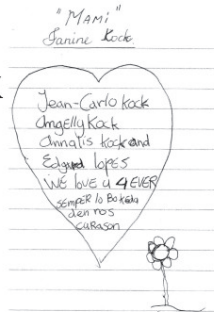 "MAMI"
Janine Kock
Jean-Carlo Kock
Angelly Kock
Annalis Kock and
Edgard lopes
WE love u 4 EVER
SEMPER lo BO Keda
den ros
CURASON